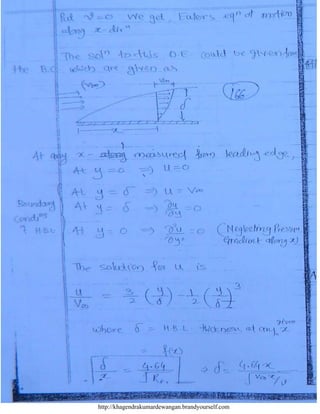 Put ν=0 we get, Euler's eqⁿ of motion
along x-dirⁿ
The solⁿ to this D.E could be given from
the B.C. which are given as
(V∞)
V∞
166
δ
x
At any x- measured from leading edge,
At y = 0 ⇒ u = 0
At y = δ ⇒ u = V∞
Boundary
Condiⁿˢ
At y = δ ⇒ ∂u/∂y = 0
7 H.B.L
At y = 0 ⇒ ∂²u/∂y² = 0 (Neglecting Pressure
Gradient along x)
The solution for u is
u/V∞ = 3/2 (y/δ) - 1/2 (y/δ)³
where δ = H.B.L thickness at any given x
= f(x)
δ/x = 4.64/√Rex ⇒ δ = 4.64·x/√(V∞x/ν)
http://khagendrakumardewangan.brandyourself.com